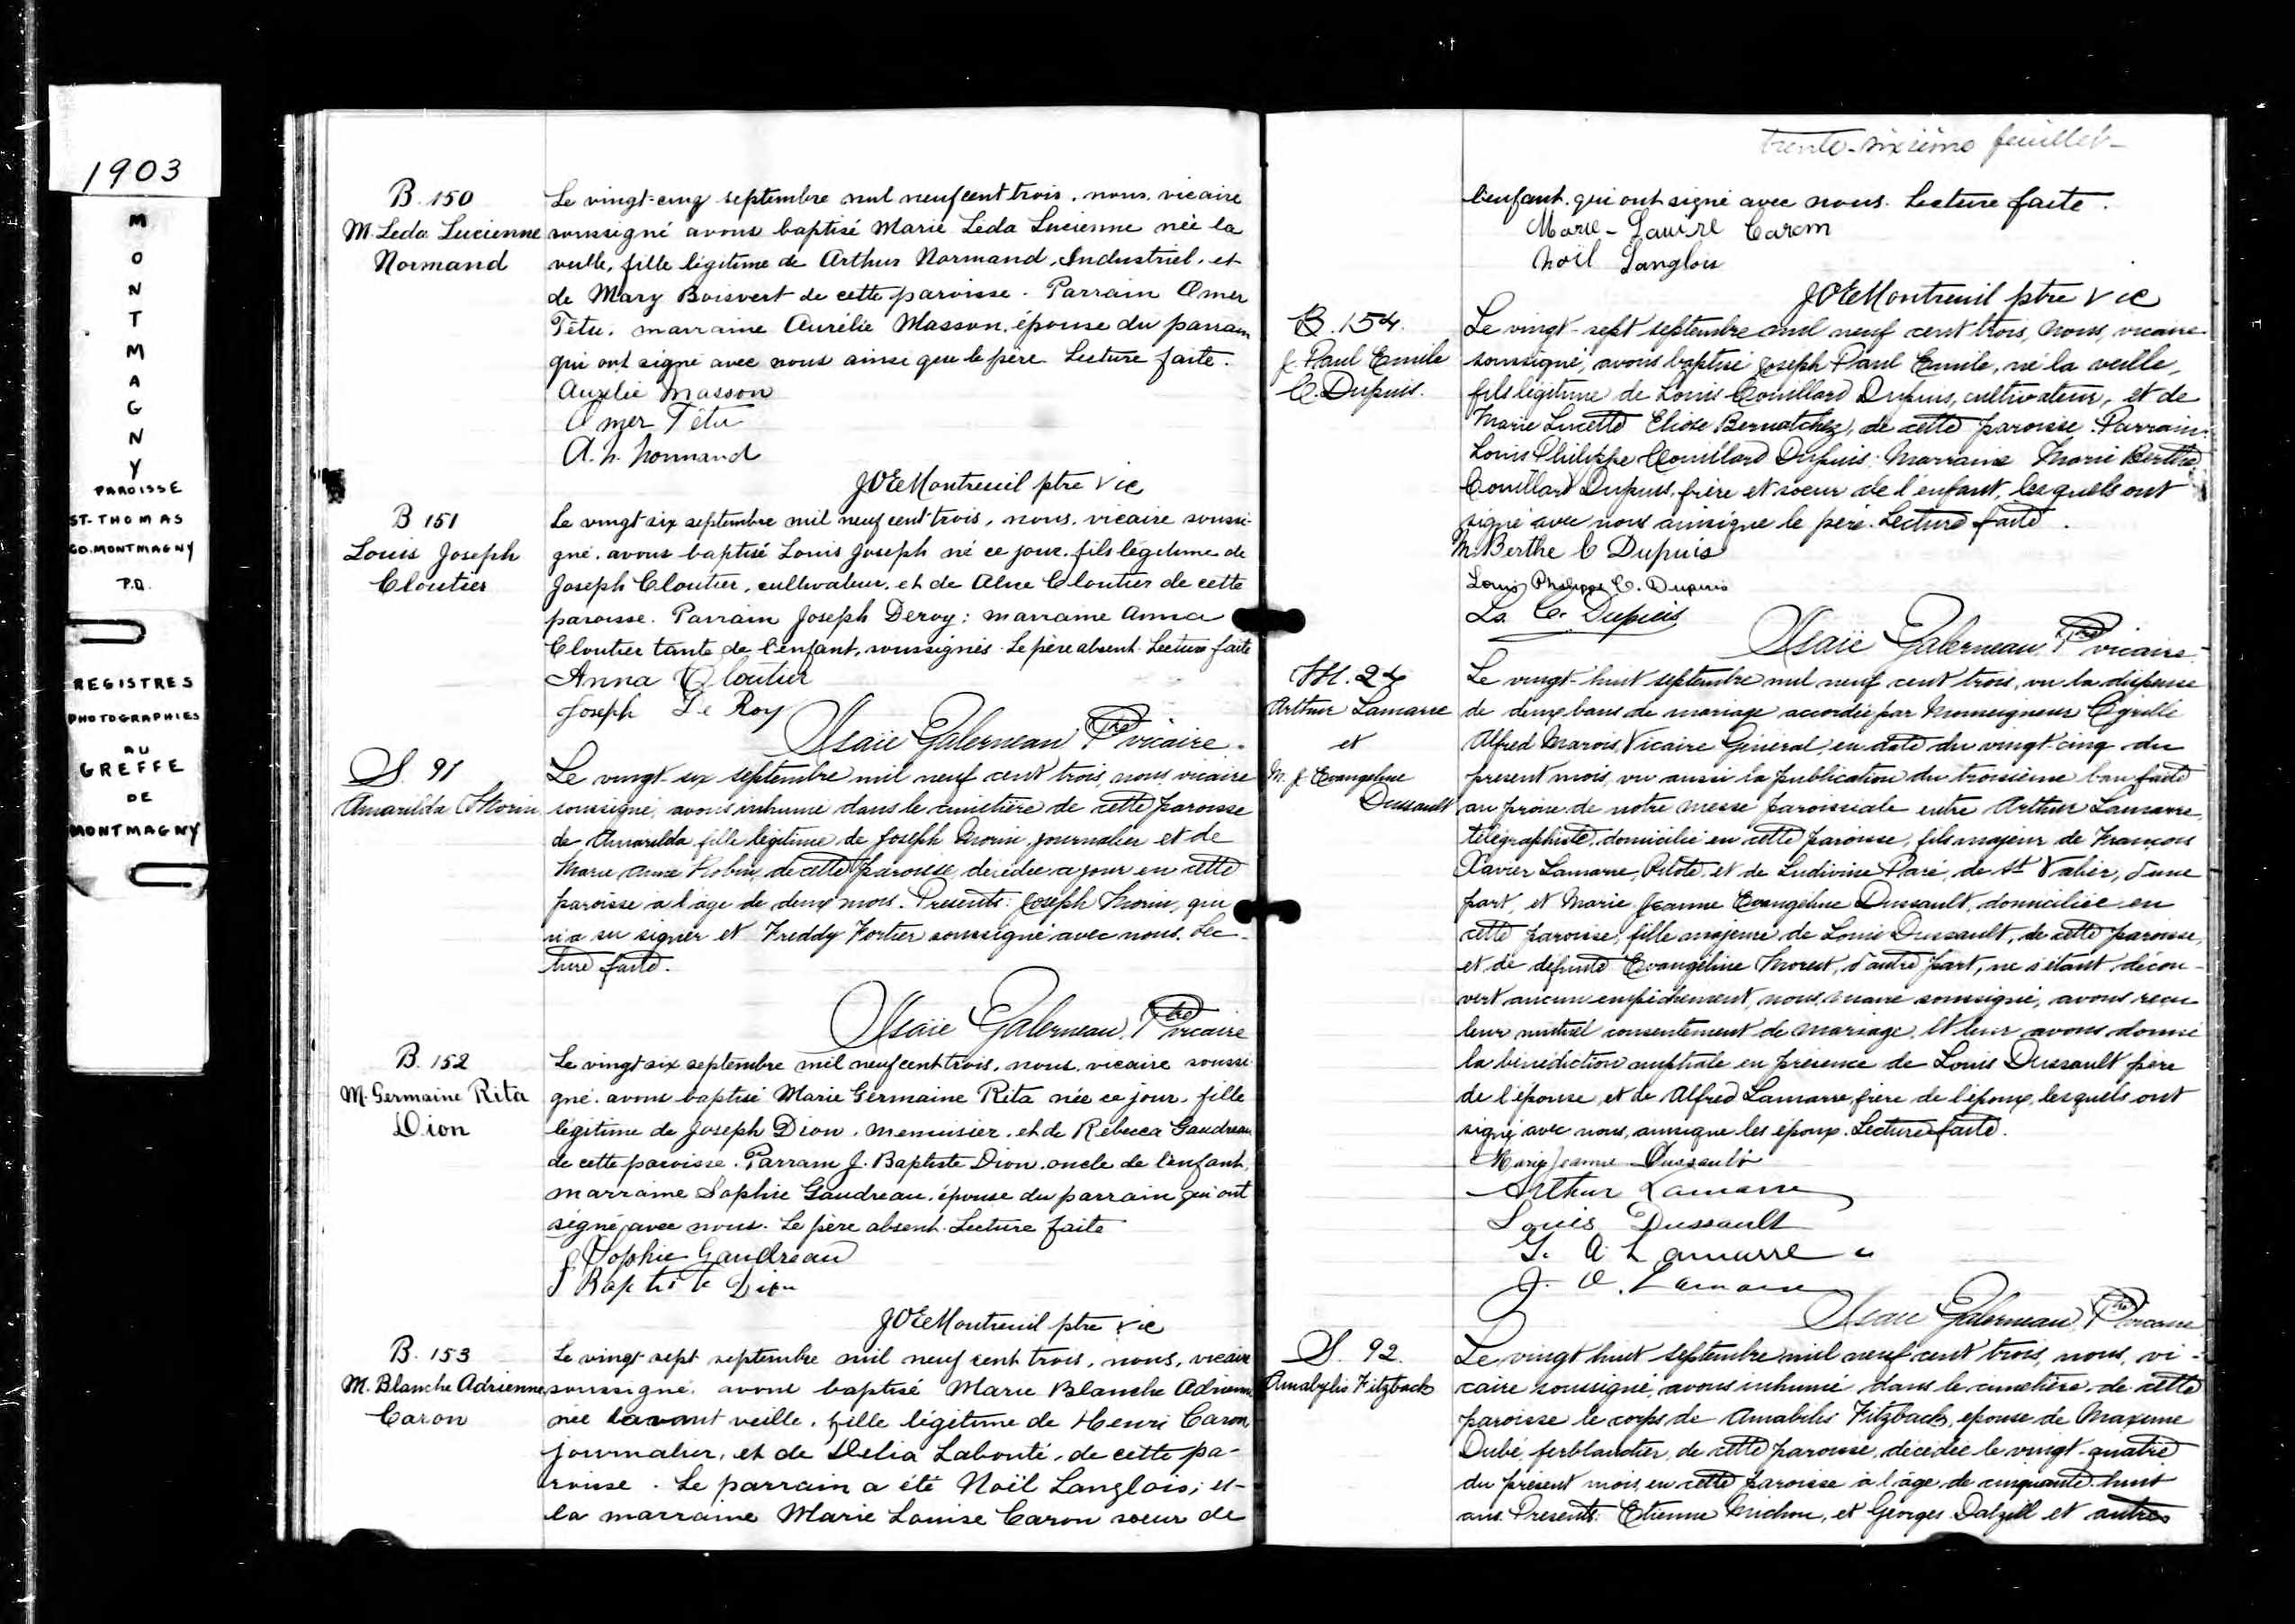 1903
MONTMAGNY
PAROISSE
ST-THOMAS
CO. MONTMAGNY
P.Q.
REGISTRES
PHOTOGRAPHIES
AU
GREFFE
DE
MONTMAGNY
B. 150
M. Leda Lucienne
Normand
Le vingt-cinq septembre mil neuf cent trois, nous, vicaire
soussigné avons baptisé Marie Leda Lucienne née la
veille, fille légitime de Arthur Normand, Industriel, et
de Mary Boisvert de cette paroisse. Parrain Omer
Têtu, marraine Aurélie Masson, épouse du parrain
qui ont signé avec nous ainsi que le père. Lecture faite.
Aurélie Masson
Omer Têtu
A. N. Normand
JOEMontreuil ptre vic
B 151
Louis Joseph
Cloutier
Le vingt six septembre mil neuf cent trois, nous, vicaire soussi-
gné, avons baptisé Louis Joseph né ce jour, fils légitime de
Joseph Cloutier, cultivateur, et de Alice Cloutier de cette
paroisse. Parrain Joseph Deroy; marraine Anna
Cloutier tante de l'enfant, soussignés. Le père absent. Lecture faite
Anna Cloutier
Joseph De Roy
Isaïe Galerneau Ptre vicaire.
S. 91
Amarilda Morin
Le vingt-six septembre mil neuf cent trois, nous, vicaire
soussigné, avons inhumé dans le cimetière de cette paroisse
de Amarilda, fille légitime de Joseph Morin, journalier et de
Marie Anne Robin, de cette paroisse, décédée ce jour en cette
paroisse à l'âge de deux mois. Présents: Joseph Morin, qui
n'a su signer et Freddy Fortier soussigné avec nous. Lec-
ture faite.
Isaïe Galerneau, Ptre vicaire
B. 152
M. Germaine Rita
Dion
Le vingt six septembre mil neuf cent trois, nous, vicaire soussi-
gné, avons baptisé Marie Germaine Rita née ce jour, fille
légitime de Joseph Dion, menuisier, et de Rébecca Gaudreau
de cette paroisse. Parrain J. Baptiste Dion, oncle de l'enfant,
marraine Sophie Gaudreau, épouse du parrain qui ont
signé avec nous. Le père absent. Lecture faite
Sophie Gaudreau
J Baptiste Dion
JOEMontreuil ptre vic
B. 153
M. Blanche Adrienne
Caron
Le vingt sept septembre mil neuf cent trois, nous, vicaire
soussigné, avons baptisé Marie Blanche Adrienne
née l'avant veille, fille légitime de Henri Caron
journalier, et de Delia Labonté, de cette pa-
roisse. Le parrain a été Noël Langlois; et
la marraine Marie Louise Caron soeur de
trente-sixième feuillet-
l'enfant, qui ont signé avec nous. Lecture faite.
Marie-Louise Caron
Noël Langlois
JOEMontreuil ptre vic
B. 154.
J. Paul Emile
C. Dupuis.
Le vingt-sept septembre mil neuf cent trois, nous, vicaire
soussigné, avons baptisé Joseph Paul Emile, né la veille,
fils légitime de Louis Couillard Dupuis, cultivateur, et de
Marie Lucette Elise Bernatchez, de cette paroisse. Parrain:
Louis Philippe Couillard Dupuis. Marraine Marie Berthe
Couillard Dupuis, frère et soeur de l'enfant, lesquels ont
signé avec nous ainsi que le père. Lecture faite.
M. Berthe C Dupuis
Louis Philippe C. Dupuis
Ls. C. Dupuis
Isaïe Galerneau Ptre vicaire.
M. 24
Arthur Lamarre
et
M. J. Evangeline
Dussault
Le vingt-huit septembre mil neuf cent trois, vu la dispense
de deux bans de mariage accordée par Monseigneur Cyrille
Alfred Marois, Vicaire Général, en date du vingt-cinq du
présent mois, vu aussi la publication du troisième ban faite
au prône de notre messe paroissiale entre Arthur Lamarre,
télégraphiste, domicilié en cette paroisse, fils majeur de François
Xavier Lamarre, Pilote, et de Ludivine Paré, de St Valier, d'une
part, et Marie Jeanne Evangeline Dussault, domiciliée en
cette paroisse, fille majeure de Louis Dussault, de cette paroisse,
et de défunte Evangéline Morest, d'autre part, ne s'étant décou-
vert aucun empêchement, nous, vicaire soussigné, avons reçu
leur mutuel consentement de mariage, et leur avons donné
la bénédiction nuptiale en présence de Louis Dussault père
de l'épouse, et de Alfred Lamarre, frère de l'époux, lesquels ont
signé avec nous, ainsi que les époux. Lecture faite.
Marie Jeanne Dussault
Arthur Lamarre
Louis Dussault
G. A. Lamarre
J. O. Lamarre
Isaïe Galerneau, Ptre vicaire
S. 92.
Amabylis Fitzback
Le vingt huit septembre mil neuf cent trois, nous, vi-
caire soussigné, avons inhumé dans le cimetière de cette
paroisse le corps de Amabilis Fitzback, épouse de Maxime
Dubé, ferblantier, de cette paroisse, décédée le vingt-quatre
du présent mois, en cette paroisse à l'âge de cinquante-huit
ans. Présents: Etienne Michon, et Georges Dalzill et autres